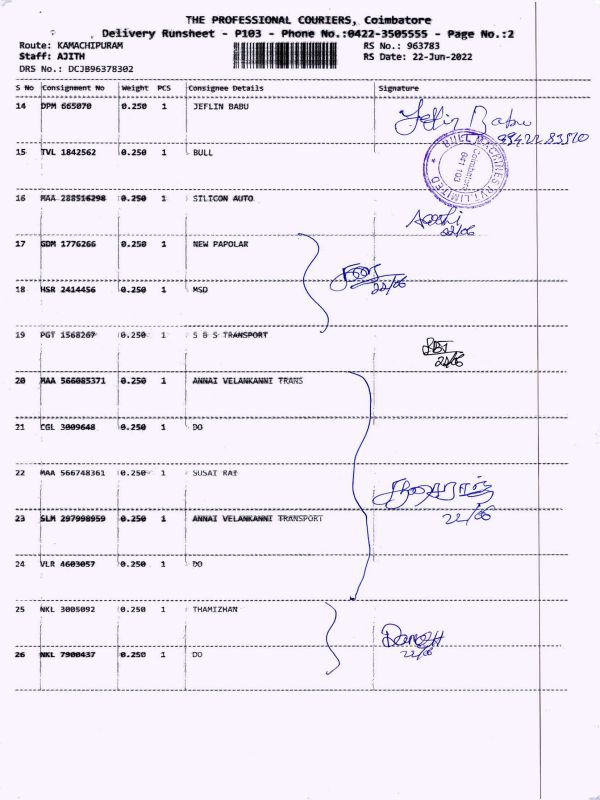 THE PROFESSIONAL COURIERS, Coimbatore
Delivery Runsheet - P103 - Phone No.:0422-3505555 - Page No.:2
Route: KAMACHIPURAM RS No.: 963783
Staff: AJITH RS Date: 22-Jun-2022
DRS No.: DCJB96378302
S No Consignment No Weight PCS Consignee Details Signature
14 DPM 665070 0.250 1 JEFLIN BABU
Jeflin Babu
15 TVL 1842562 0.250 1 BULL
BULL MACHINES PVT LIMITED
Coimbatore
641 103
16 MAA 288516298 0.250 1 SILICON AUTO
22/06
17 GDM 1776266 0.250 1 NEW PAPOLAR
22/06
18 HSR 2414456 0.250 1 MSD
19 PGT 1568267 0.250 1 S B S TRANSPORT
22/06
20 MAA 566085371 0.250 1 ANNAI VELANKANNI TRANS
21 CGL 3009648 0.250 1 DO
22 MAA 566748361 0.250 1 SUSAI RAJ
23 SLM 297998959 0.250 1 ANNAI VELANKANNI TRANSPORT
22/06
24 VLR 4603057 0.250 1 DO
25 NKL 3005092 0.250 1 THAMIZHAN
22/06
26 NKL 7900437 0.250 1 DO